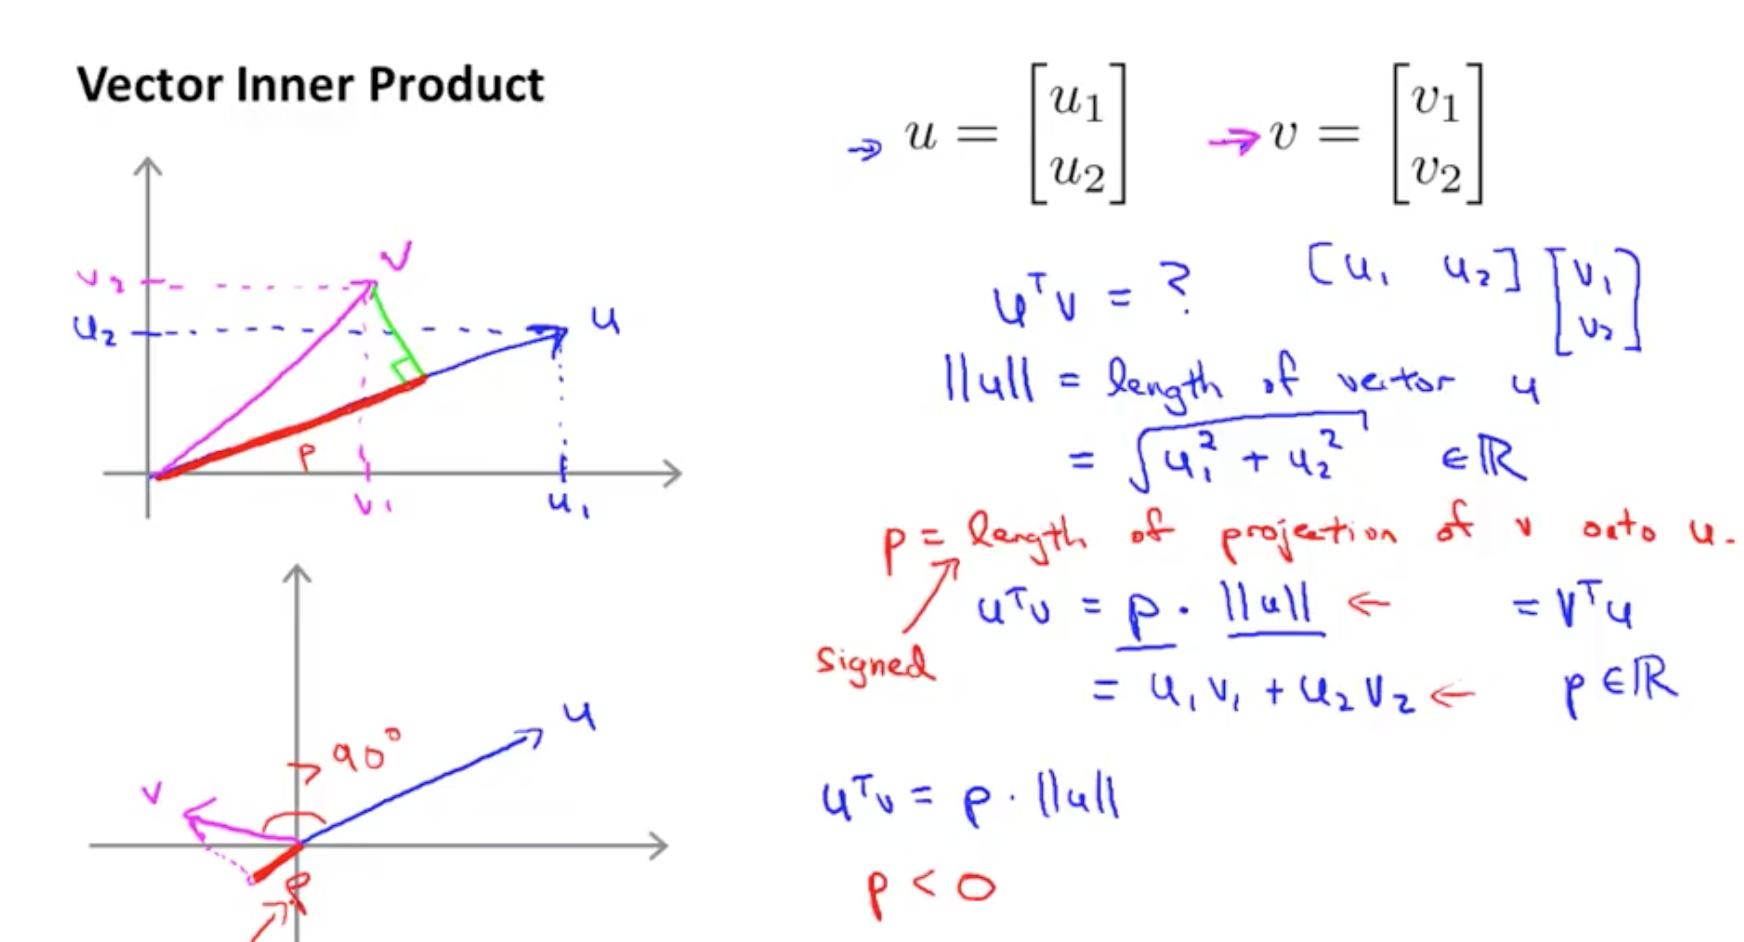 Vector Inner Product
→ u = [u₁ u₂] → v = [v₁ v₂]
v
v₂
u₂
u
p
v₁
u₁
uᵀv = ? [u₁ u₂] [v₁ v₂]
||u|| = length of vector u
= √(u₁² + u₂²) ∈ ℝ
p = length of projection of v onto u.
signed
uᵀv = p · ||u|| ← = vᵀu
= u₁v₁ + u₂v₂ ← p ∈ ℝ
u
> 90°
v
p
uᵀv = p · ||u||
p < 0